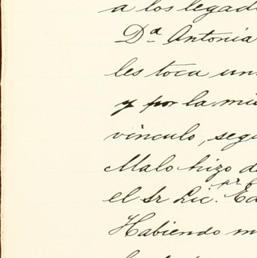 a los legad
Da Antonia
les toca un
y por la mi
vinculo, segu
Malo hizo d
el Sr Lic. Ed
Habiendo m